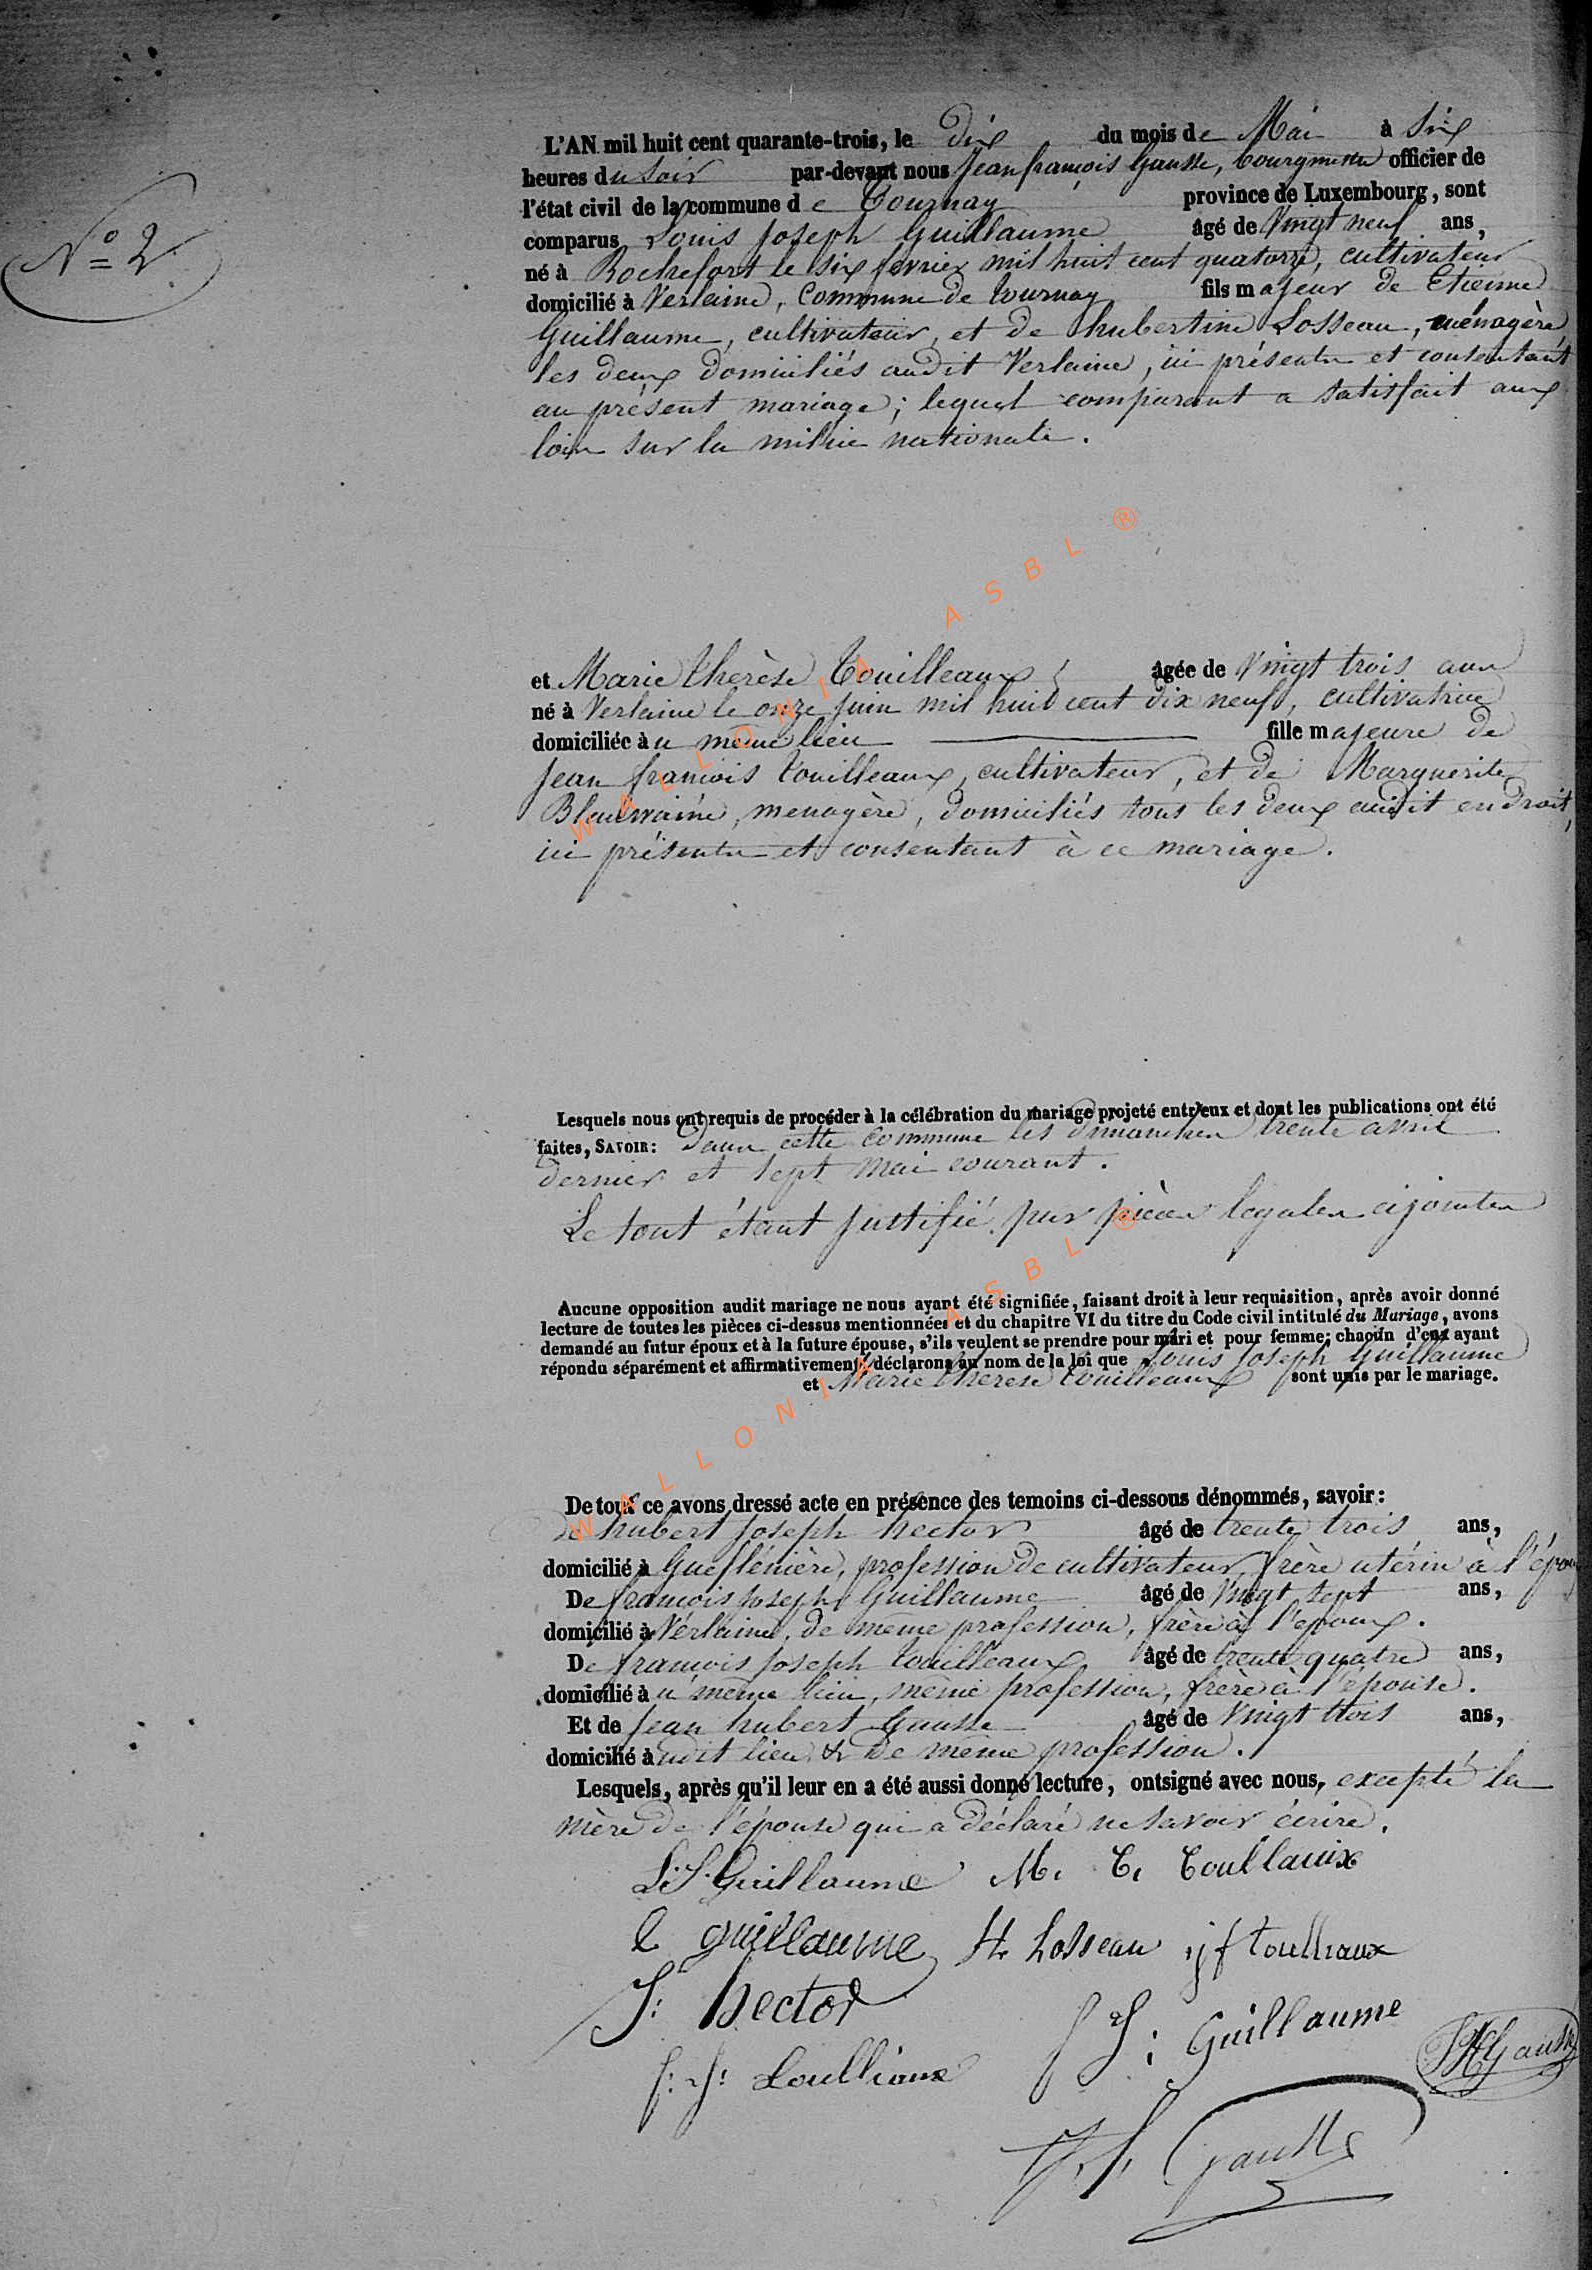 L'AN mil huit cent quarante-trois, le dix du mois de Mai à Six
heures du soir par-devant nous Jean françois Gausse, bourgmestre officier de
l'état civil de la commune de Tournay province de Luxembourg, sont
comparus Louis Joseph Guillaume âgé de Vingt neuf ans,
né à Rochefort le six fevrier mil huit cent quatorze, cultivateur
domicilié à Verlaine, Commune de tournay fils majeur de Etienne
Guillaume, cultivateur, et de hubertine Losseau, ménagère
les deux domiciliés audit Verlaine, ici présents et consentant
au présent mariage; lequel comparant a satisfait aux
loix sur la milice nationale.
N° 2
et Marie thérèse Touilleaux âgée de Vingt trois ans
né à Verlaine le onze juin mil huit cent dix neuf, cultivatrice
domiciliée à u même lieu fille majeure de
Jean francois touilleaux, cultivateur, et de Marguerite
menagère, domiciliés tous les deux audit endroit,
ici présents et consentant à ce mariage.
Lesquels nous ont requis de procéder à la célébration du mariage projeté entr'eux et dont les publications ont été
faites, SAVOIR: dans cette commune les dimanches trente avril
dernier et sept mai courant.
Le tout étant justifié par pièces legales cijointes
Aucune opposition audit mariage ne nous ayant été signifiée, faisant droit à leur requisition, après avoir donné
lecture de toutes les pièces ci-dessus mentionnées et du chapitre VI du titre du Code civil intitulé du Mariage, avons
demandé au futur époux et à la future épouse, s'ils veulent se prendre pour mari et pour femme; chacun d'eux ayant
répondu séparément et affirmativement, déclarons au nom de la loi que Louis Joseph Guillaume
et Marie therese touilleaux sont unis par le mariage.
De tout ce avons dressé acte en présence des temoins ci-dessous dénommés, savoir:
de hubert joseph hector âgé de trente trois ans,
domicilié à profession de cultivateur, frère utérin à l'époux
De francois joseph Guillaume âgé de Vingt sept ans,
domicilié à Verlaine, de même profession, frère à l'epoux.
De francois joseph touilleaux âgé de trente quatre ans,
domicilié à u même lieu, même profession, frère à l'épouse.
Et de jean hubert Gausse âgé de Vingt trois ans,
domicilié à udit lieu & de même profession.
Lesquels, après qu'il leur en a été aussi donné lecture, ont signé avec nous, excepté la
mère de l'épouse qui a déclaré ne savoir écrire.
L:J. Guillaume M. T. Toullauix
e guillaume H Losseau jf toullieaux
J: hector
f J: Guillaume
JH Gausse
f: J: Loulliaux
J. f. Gausse
WALLONIA ASBL ®
WALLONIA ASBL ®